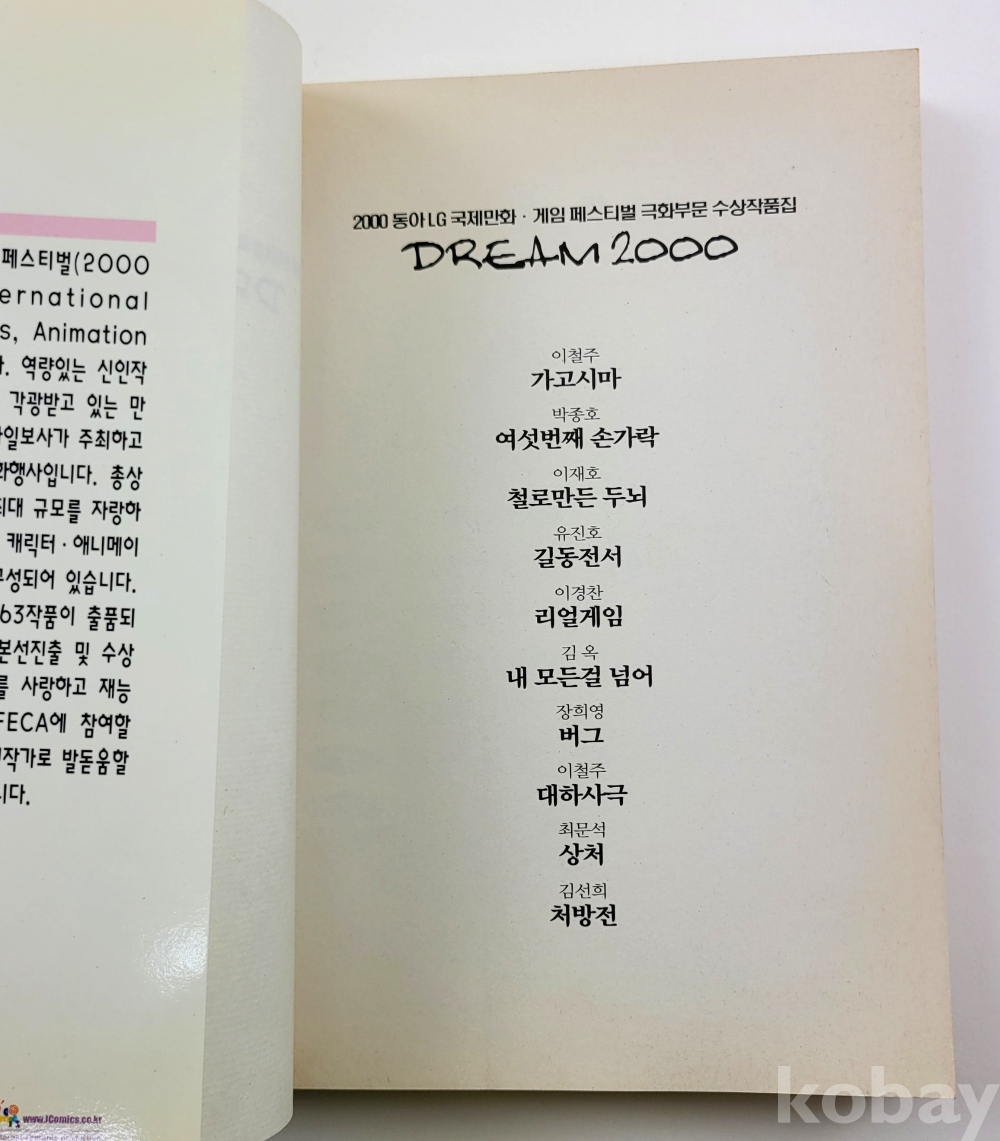 페스티벌(2000
ernational
s, Animation
역량있는 신인작
각광받고 있는 만
일보사가 주최하고
화행사입니다. 총상
최대 규모를 자랑하
캐릭터·애니메이
구성되어 있습니다.
63작품이 출품되
본선진출 및 수상
를 사랑하고 재능
FECA에 참여할
작가로 발돋움할
니다.
www.JComics.co.kr
2000 동아LG 국제만화·게임 페스티벌 극화부문 수상작품집
DREAM 2000
이철주
가고시마
박종호
여섯번째 손가락
이재호
철로만든 두뇌
유진호
길동전서
이경찬
리얼게임
김 옥
내 모든걸 넘어
장희영
버그
이철주
대하사극
최문석
상처
김선희
처방전
kobay